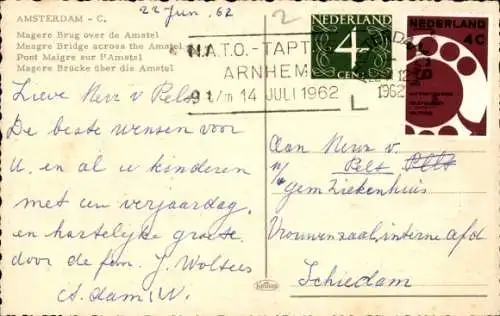 AMSTERDAM - C.
Magere Brug over de Amstel
Meagre Bridge across the Amstel
Pont Maigre sur l'Amstel
Magere Brücke über die Amstel
22 Jun. '62
2
N.A.T.O.-TAPT
ARNHEM
9 t/m 14 JULI 1962
NEDERLAND
4
CENT
NEDERLAND
4C
1962
Lieve Mevr v Pelt
De beste wensen voor
U. en al u kinderen
met uw verjaardag.
en hartelijke groete
door de fam. J. Woltees
A.dam.W.
Aan Mevr v.
Pelt
gem Ziekenhuis
Vrouwenzaal interne afd
Schiedam